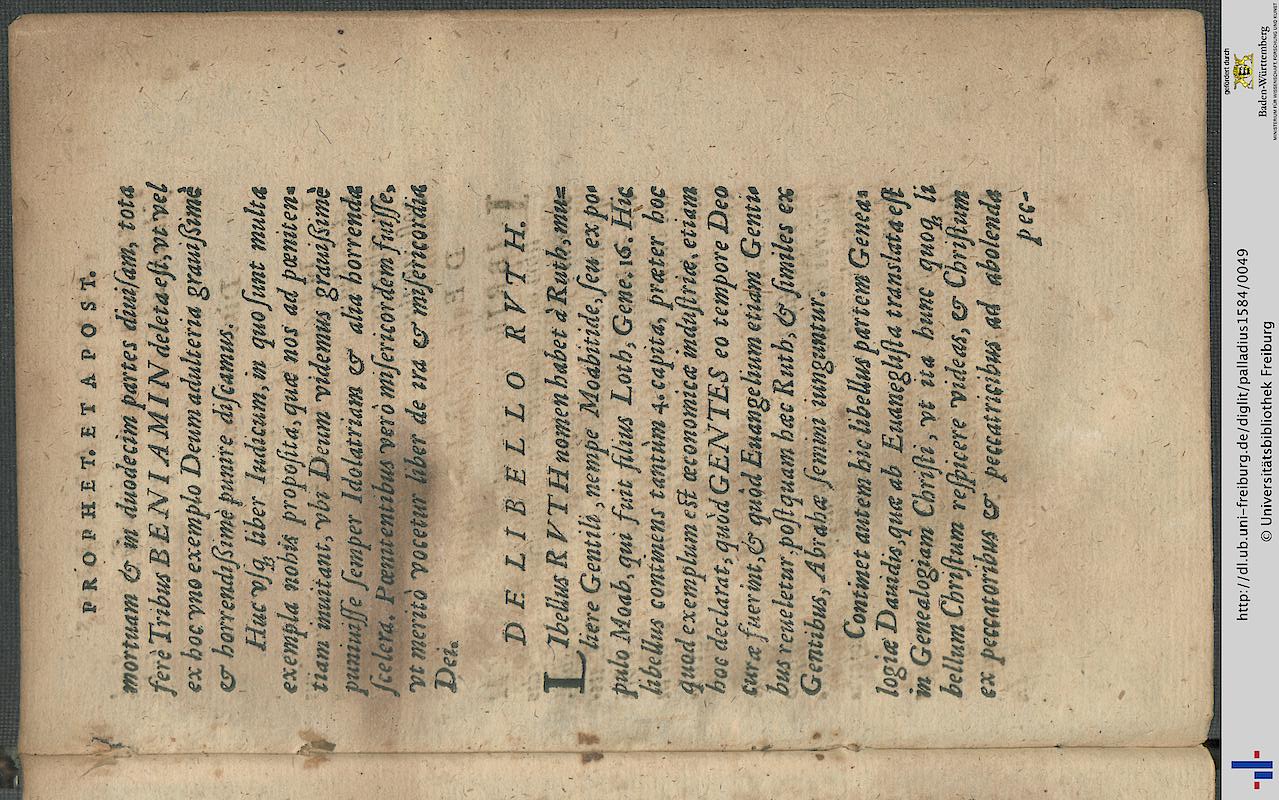 PROPHET. ET APOST.
mortuam & in duodecim partes diuiſam, tota
ferè Tribus BENIAMIN deleta eſt, vt vel
ex hoc vno exemplo Deum adulteria grauißimè
& horrendißimè punire diſcamus.
Huc vſq; liber Iudicum, in quo ſunt multa
exempla nobis propoſita, quæ nos ad pœniten-
tiam inuitant, vbi Deum videmus grauißimè
puniuiſſe ſemper Idolatriam & alia horrenda
ſcelera. Pœnitentibus verò miſericordem fuiſſe,
vt meritò vocetur liber de ira & miſericordia
Dei.
DE LIBELLO RVTH.
LIbellus RVTH nomen habet à Ruth, mu-
liere Gentili, nempe Moabitide, ſeu ex po
pulo Moab, qui fuit filius Loth, Gene. 16. Hic
libellus continens tantùm 4. capita, præter hoc
quod exemplum eſt œconomicæ induſtriæ, etiam
hoc declarat, quòd GENTES eo tempore Deo
curæ fuerint, & quòd Euangelium etiam Genti-
bus reueletur, poſtquam hæc Ruth, & ſimiles ex
Gentibus, Abrahæ ſemini iunguntur.
Continet autem hic libellus partem Genea-
logiæ Dauidis, quæ ab Euangeliſta translata eſt
in Genealogiam Chriſti, vt ita hunc quoq; li
bellum Chriſtum reſpicere videas, & Chriſtum
ex peccatoribus & peccatricibus ad abolenda
pec-
gefördert durch
Baden-Württemberg
MINISTERIUM FÜR WISSENSCHAFT, FORSCHUNG UND KUNST
http://dl.ub.uni-freiburg.de/diglit/palladius1584/0049
© Universitätsbibliothek Freiburg